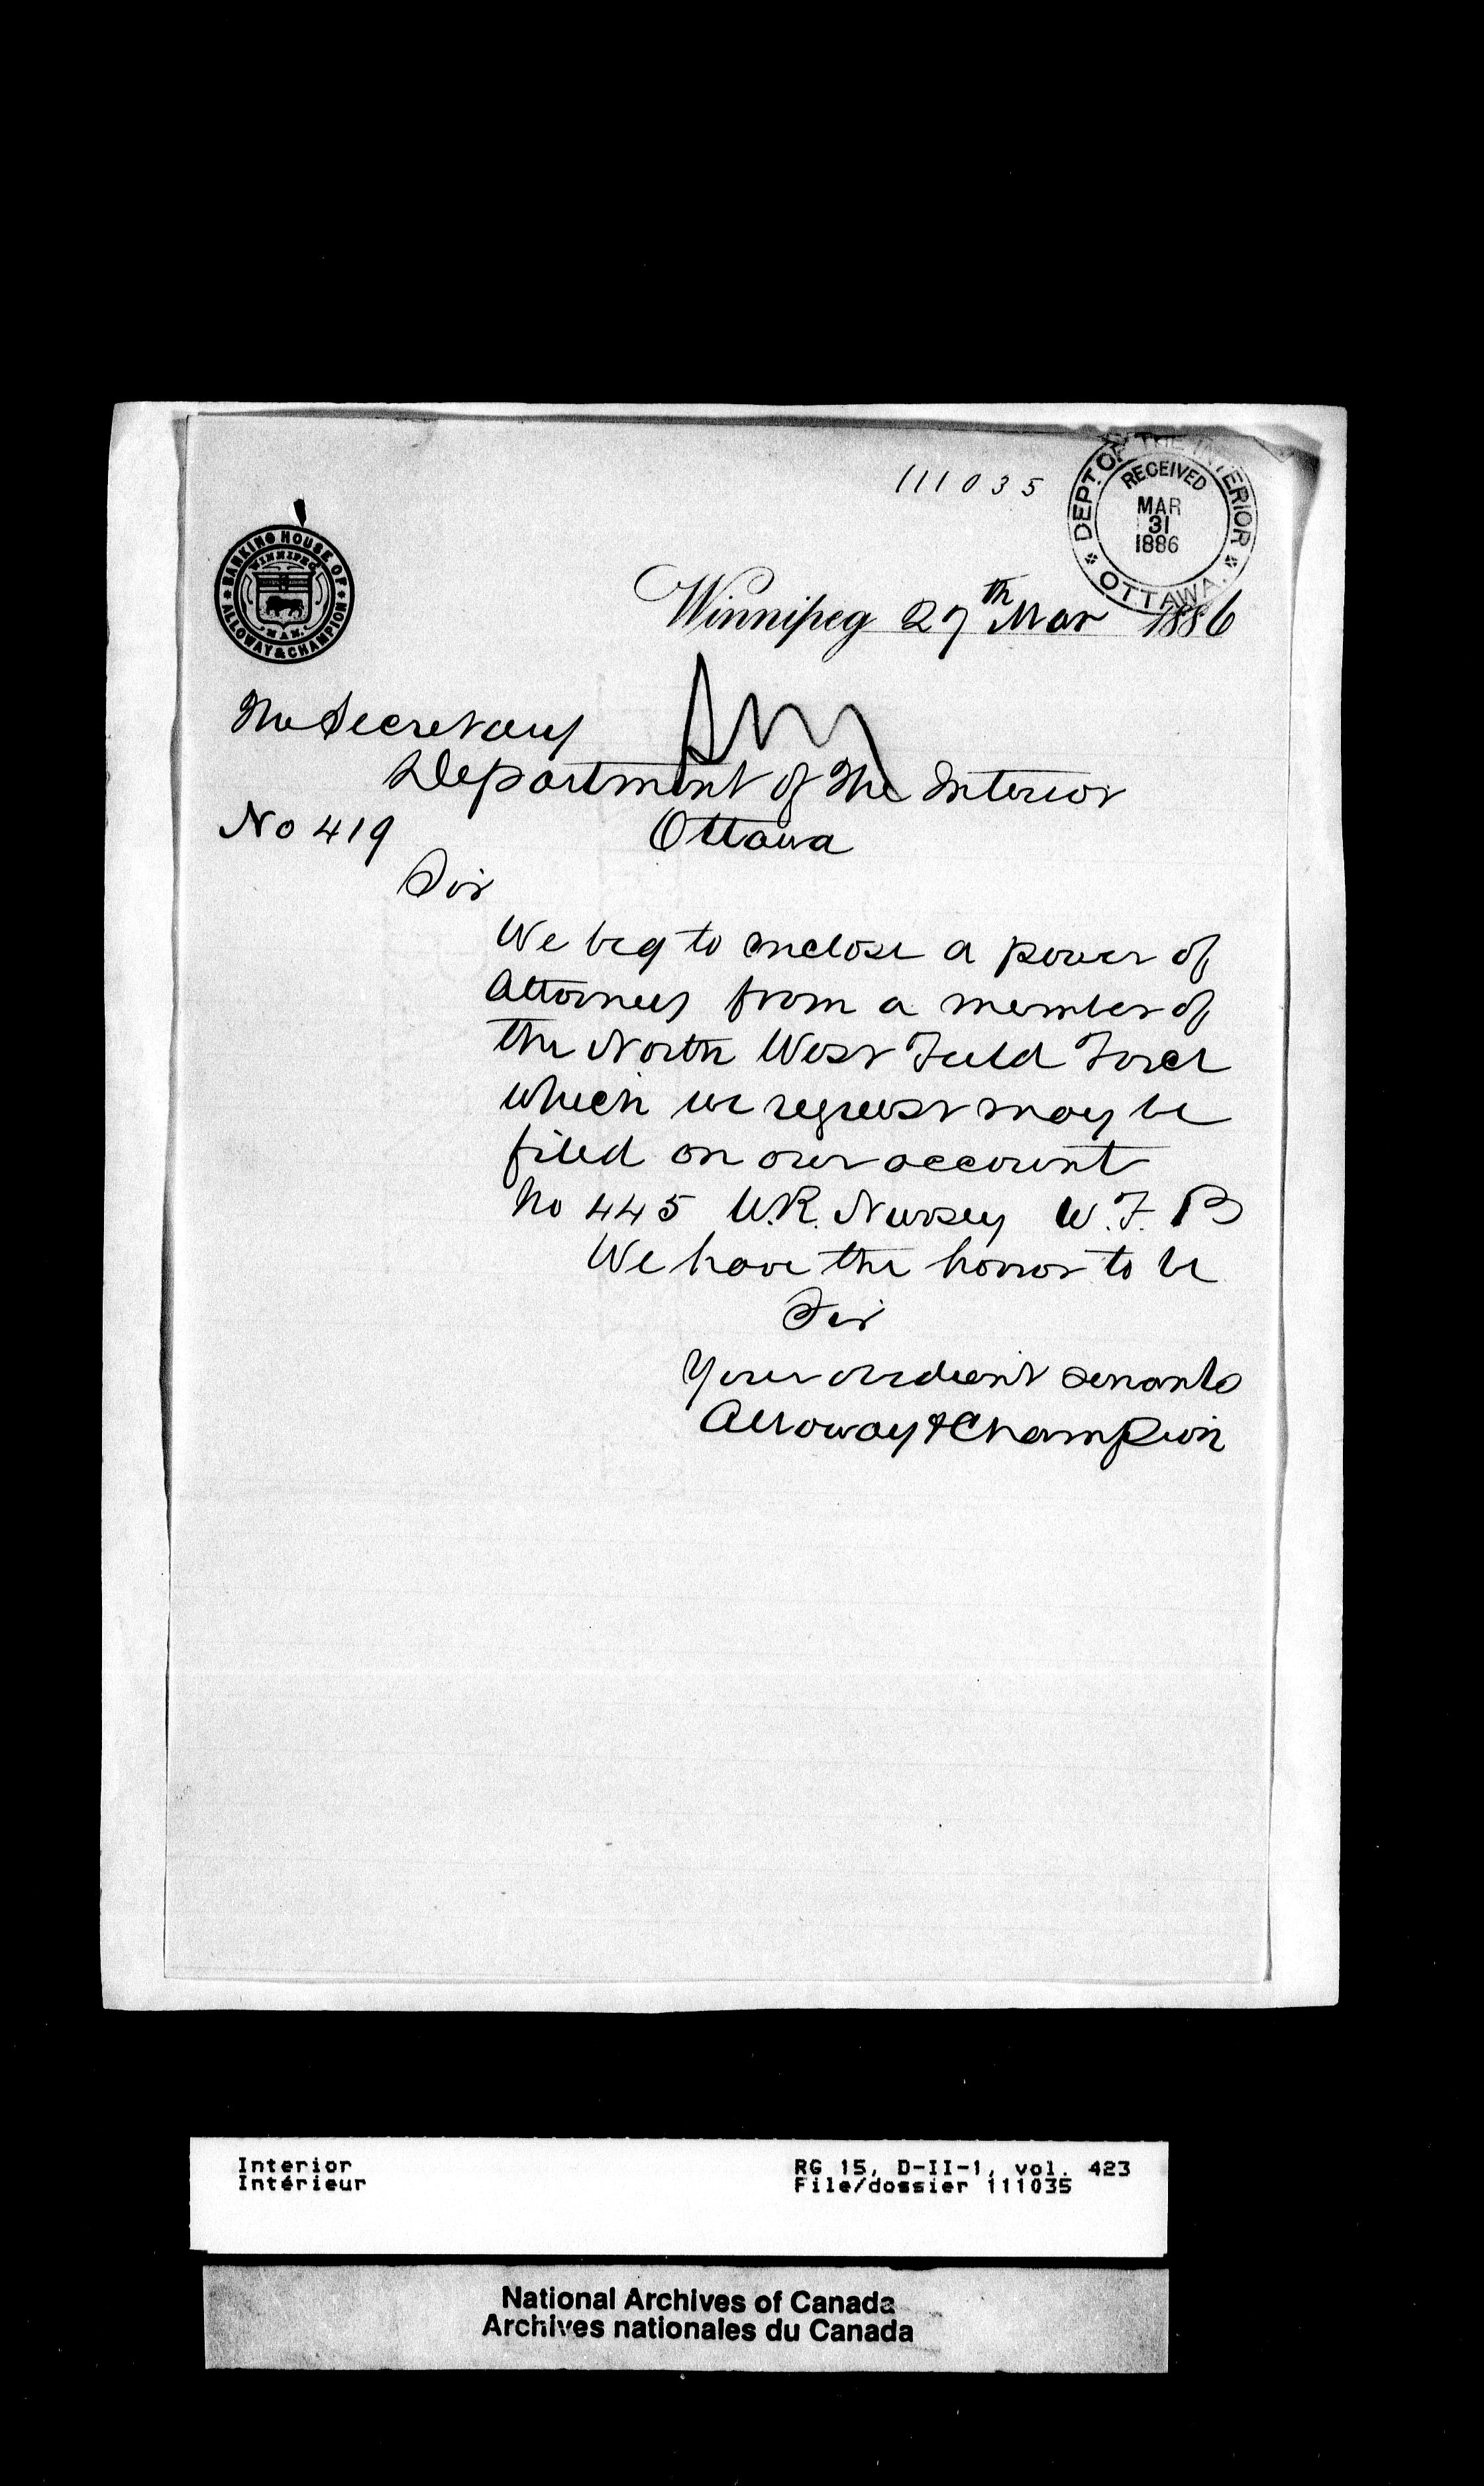 111035
DEPT. OF THE INTERIOR
RECEIVED
MAR
31
1886
OTTAWA.
BANKING HOUSE OF
ALLOWAY & CHAMPION
WINNIPEG
MAN.
Winnipeg 27th Mar 1886
The Secretary
Department of The Interior
No 419 Ottawa
Sir
We beg to enclose a power of
Attorney from a member of
the North West Field Force
which we request may be
filed on our account
No 445 W.R. Nursey W. F. B
We have the honor to be
Sir
Your obedient servants
Alloway & Champion
Interior
Intérieur
RG 15, D-II-1, vol. 423
File/dossier 111035
National Archives of Canada
Archives nationales du Canada